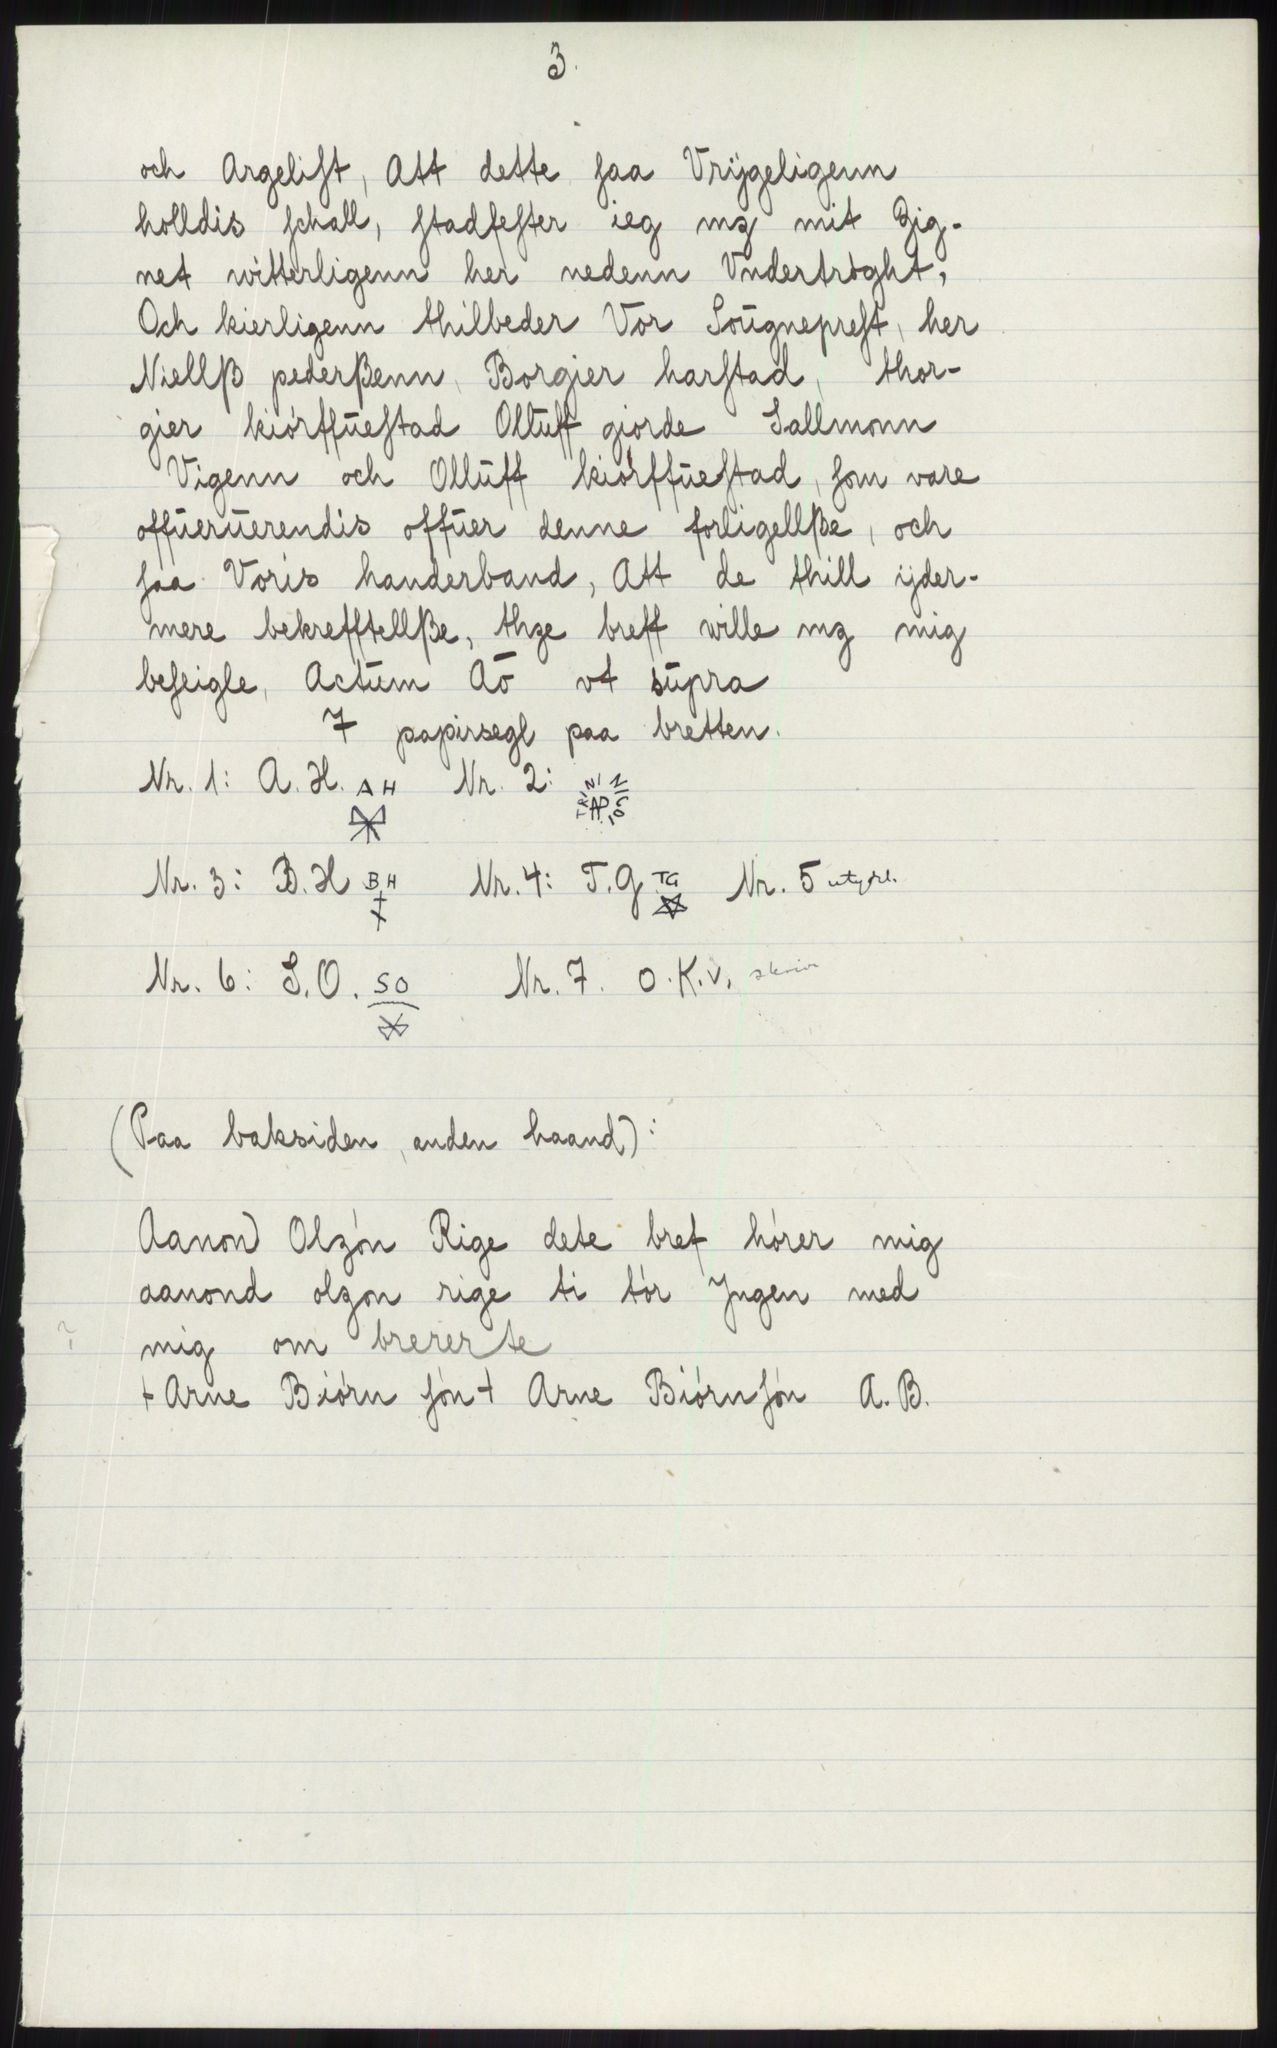 3.
och Argelist, Att dette saa Vrÿgeligenn
holldis schall, stadfester ieg mz mit Zig-
net witterligenn her nedenn Vndertröght,
Och kierligenn thilbeder Vor Soŭgneprest, her
Niellß pederßenn, Borgier harstad, thor-
gier kiórffŭestad Ollŭff giorde Sallmonn
Vigenn och Ollŭff kiórffŭestad, som vare
offŭerŭerendis offŭer denne forligellße, och
saa Voris handerband, Att de thill ÿder-
mere bekrefftellße, thze breff wille mz mig
beseigle, Actŭm Aō vt sŭpra
7 papirsegl paa bretten.
Nr. 1: A. H. A H Nr. 2: TRINI AP
Nr. 3: B. H B H Nr. 4: T. G TG Nr. 5 utydel.
Nr. 6: S. O. S O Nr. 7. O. K. V. skriv
(Paa baksiden, anden haand):
Aanond Olzón Rige dete bref hórer mig
aanond olzon rige ti tór Jngen med
? mig om brererte
+ Arne Biórn són + Arne Biórnsón A. B.